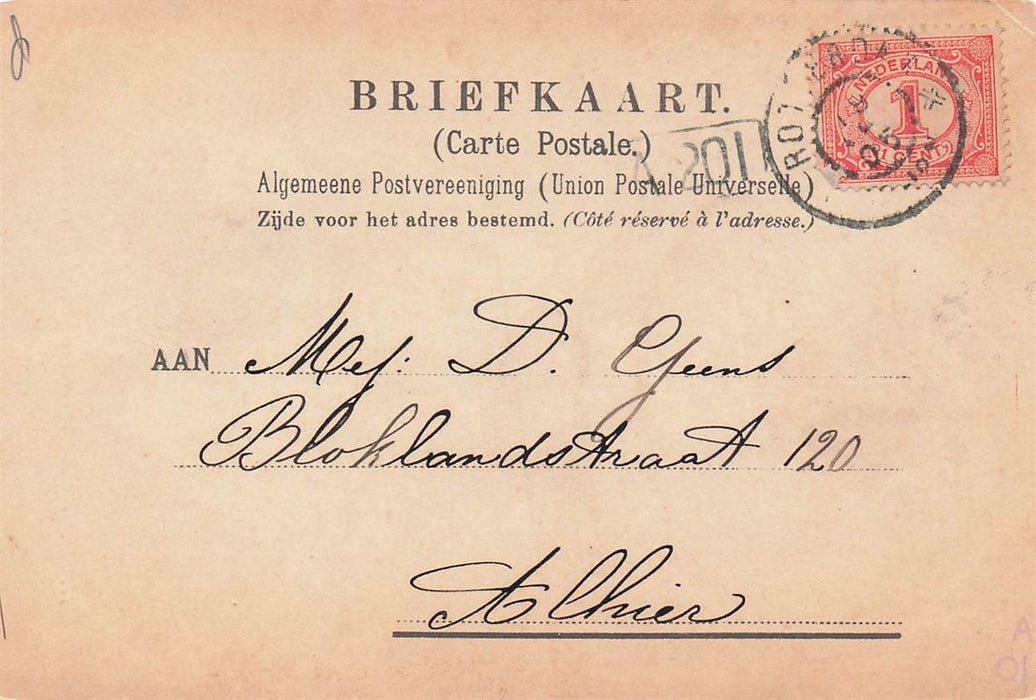 BRIEFKAART.
(Carte Postale.)
Algemeene Postvereeniging (Union Postale Universelle)
Zijde voor het adres bestemd. (Côté réservé à l'adresse.)
NEDERLAND
1
1 CENT
201
AAN Mej: D. Geens
Bloklandstraat 120
Alhier